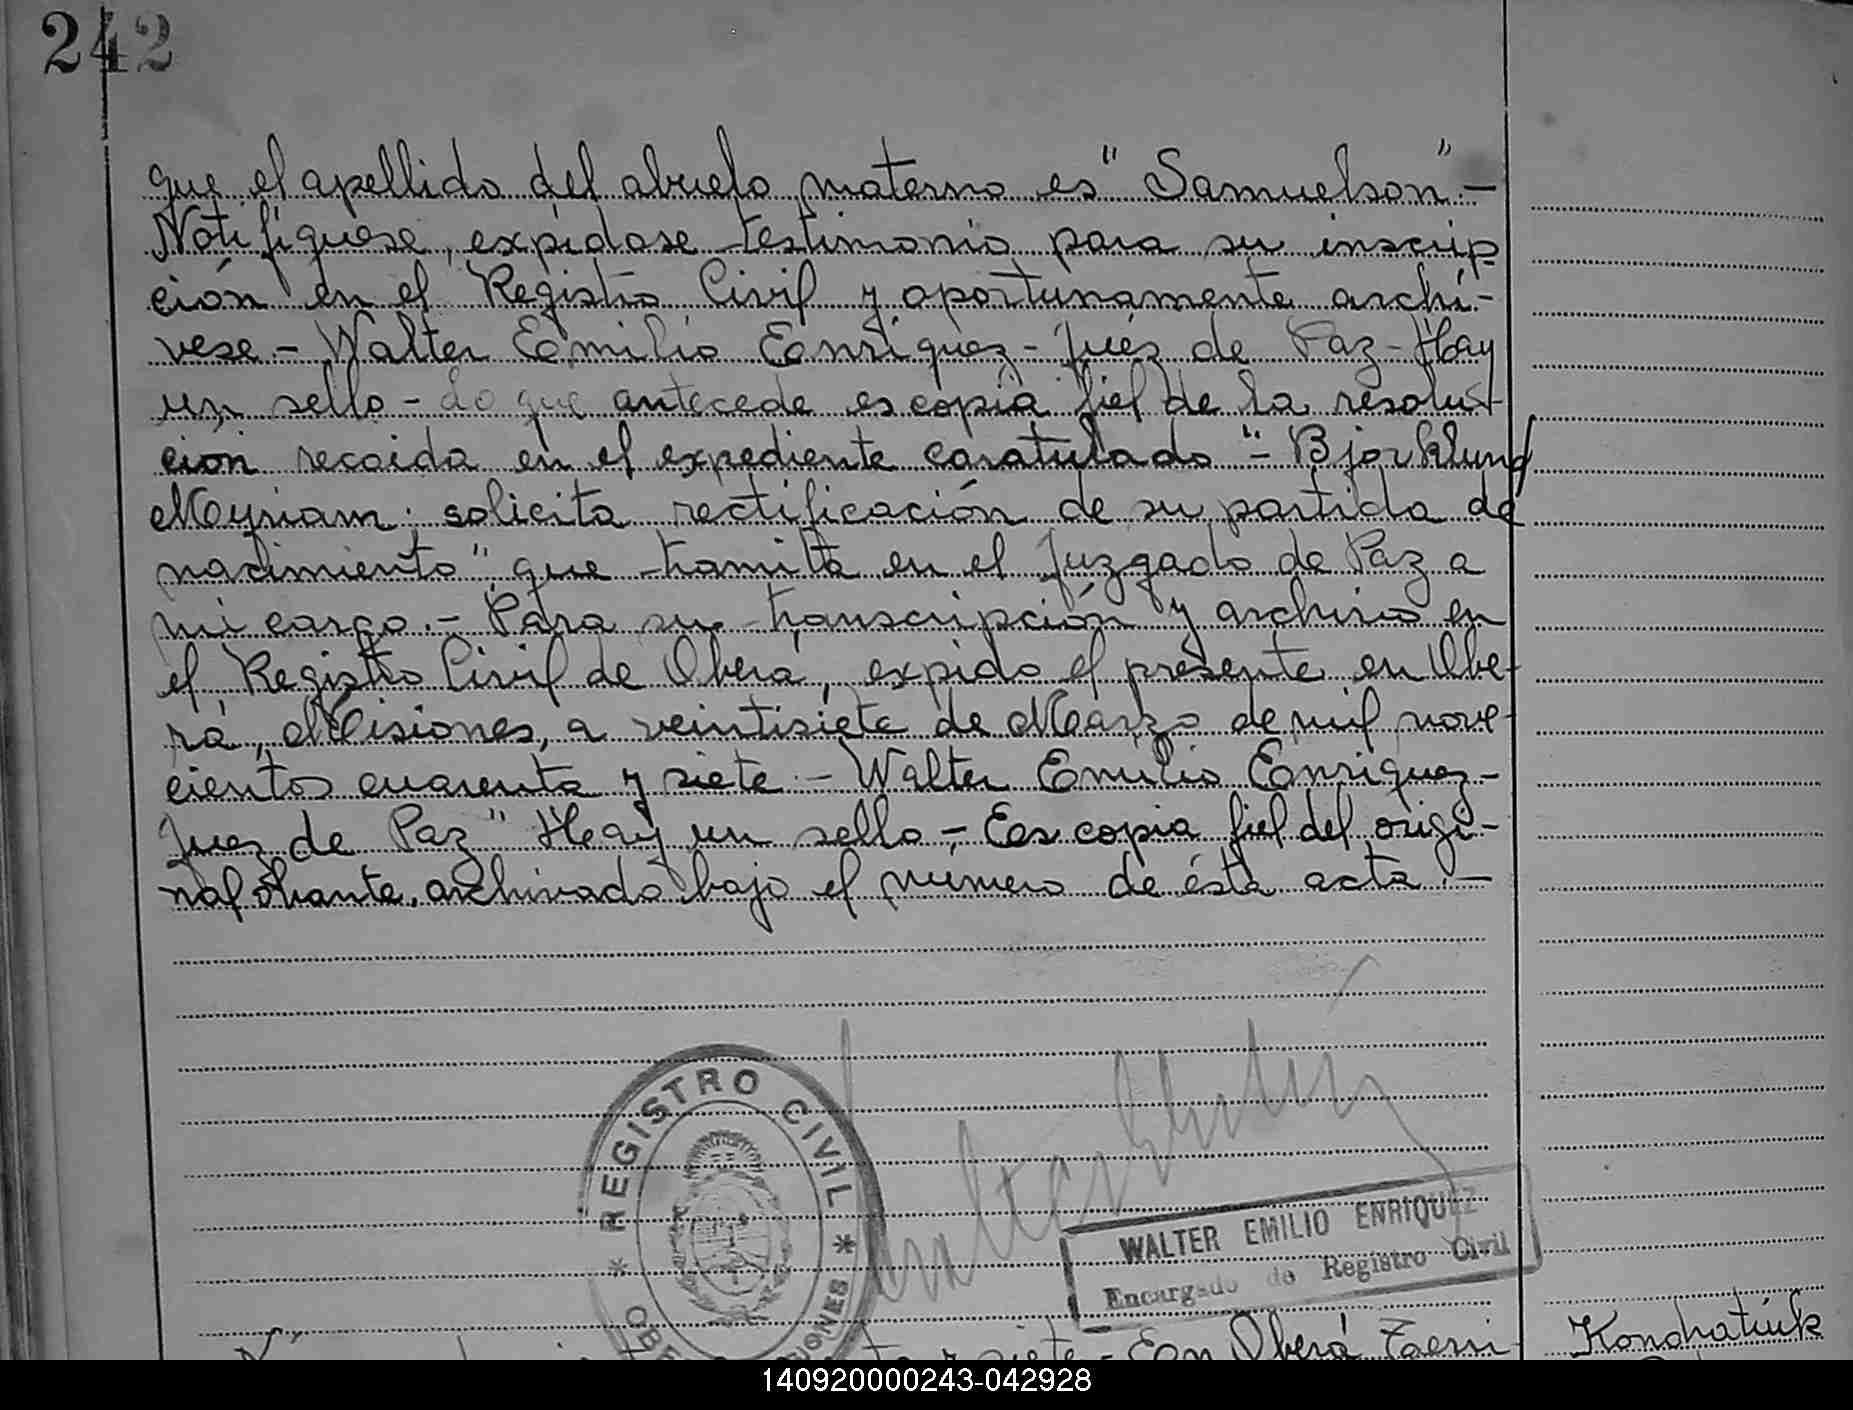 242
que el apellido del abuelo materno es "Samuelson".-
Notifíquese, expídase testimonio para su inscrip-
ción en el Registro Civil y oportunamente archí-
vese.- Walter Emilio Enríquez - Juez de Paz - Hay
un sello - Lo que antecede es copia fiel de la resolu-
ción recaída en el expediente caratulado "- Bjorklund
Myriam: solicita rectificación de su partida de
nacimiento", que tramita en el Juzgado de Paz a
mi cargo.- Para su transcripción y archivo en
el Registro Civil de Oberá, expido el presente en Obe-
rá, Misiones, a veintisiete de Marzo de mil nove-
cientos cuarenta y siete.- Walter Emilio Enriquez-
Juez de Paz" Hay un sello.- Es copia fiel del origi-
nal obrante, archivado bajo el número de ésta acta.-
* REGISTRO CIVIL *
WALTER EMILIO ENRIQUEZ
Encargado de Registro Civil
y siete - En Oberá Terri-
Kondratiuk
140920000243-042928